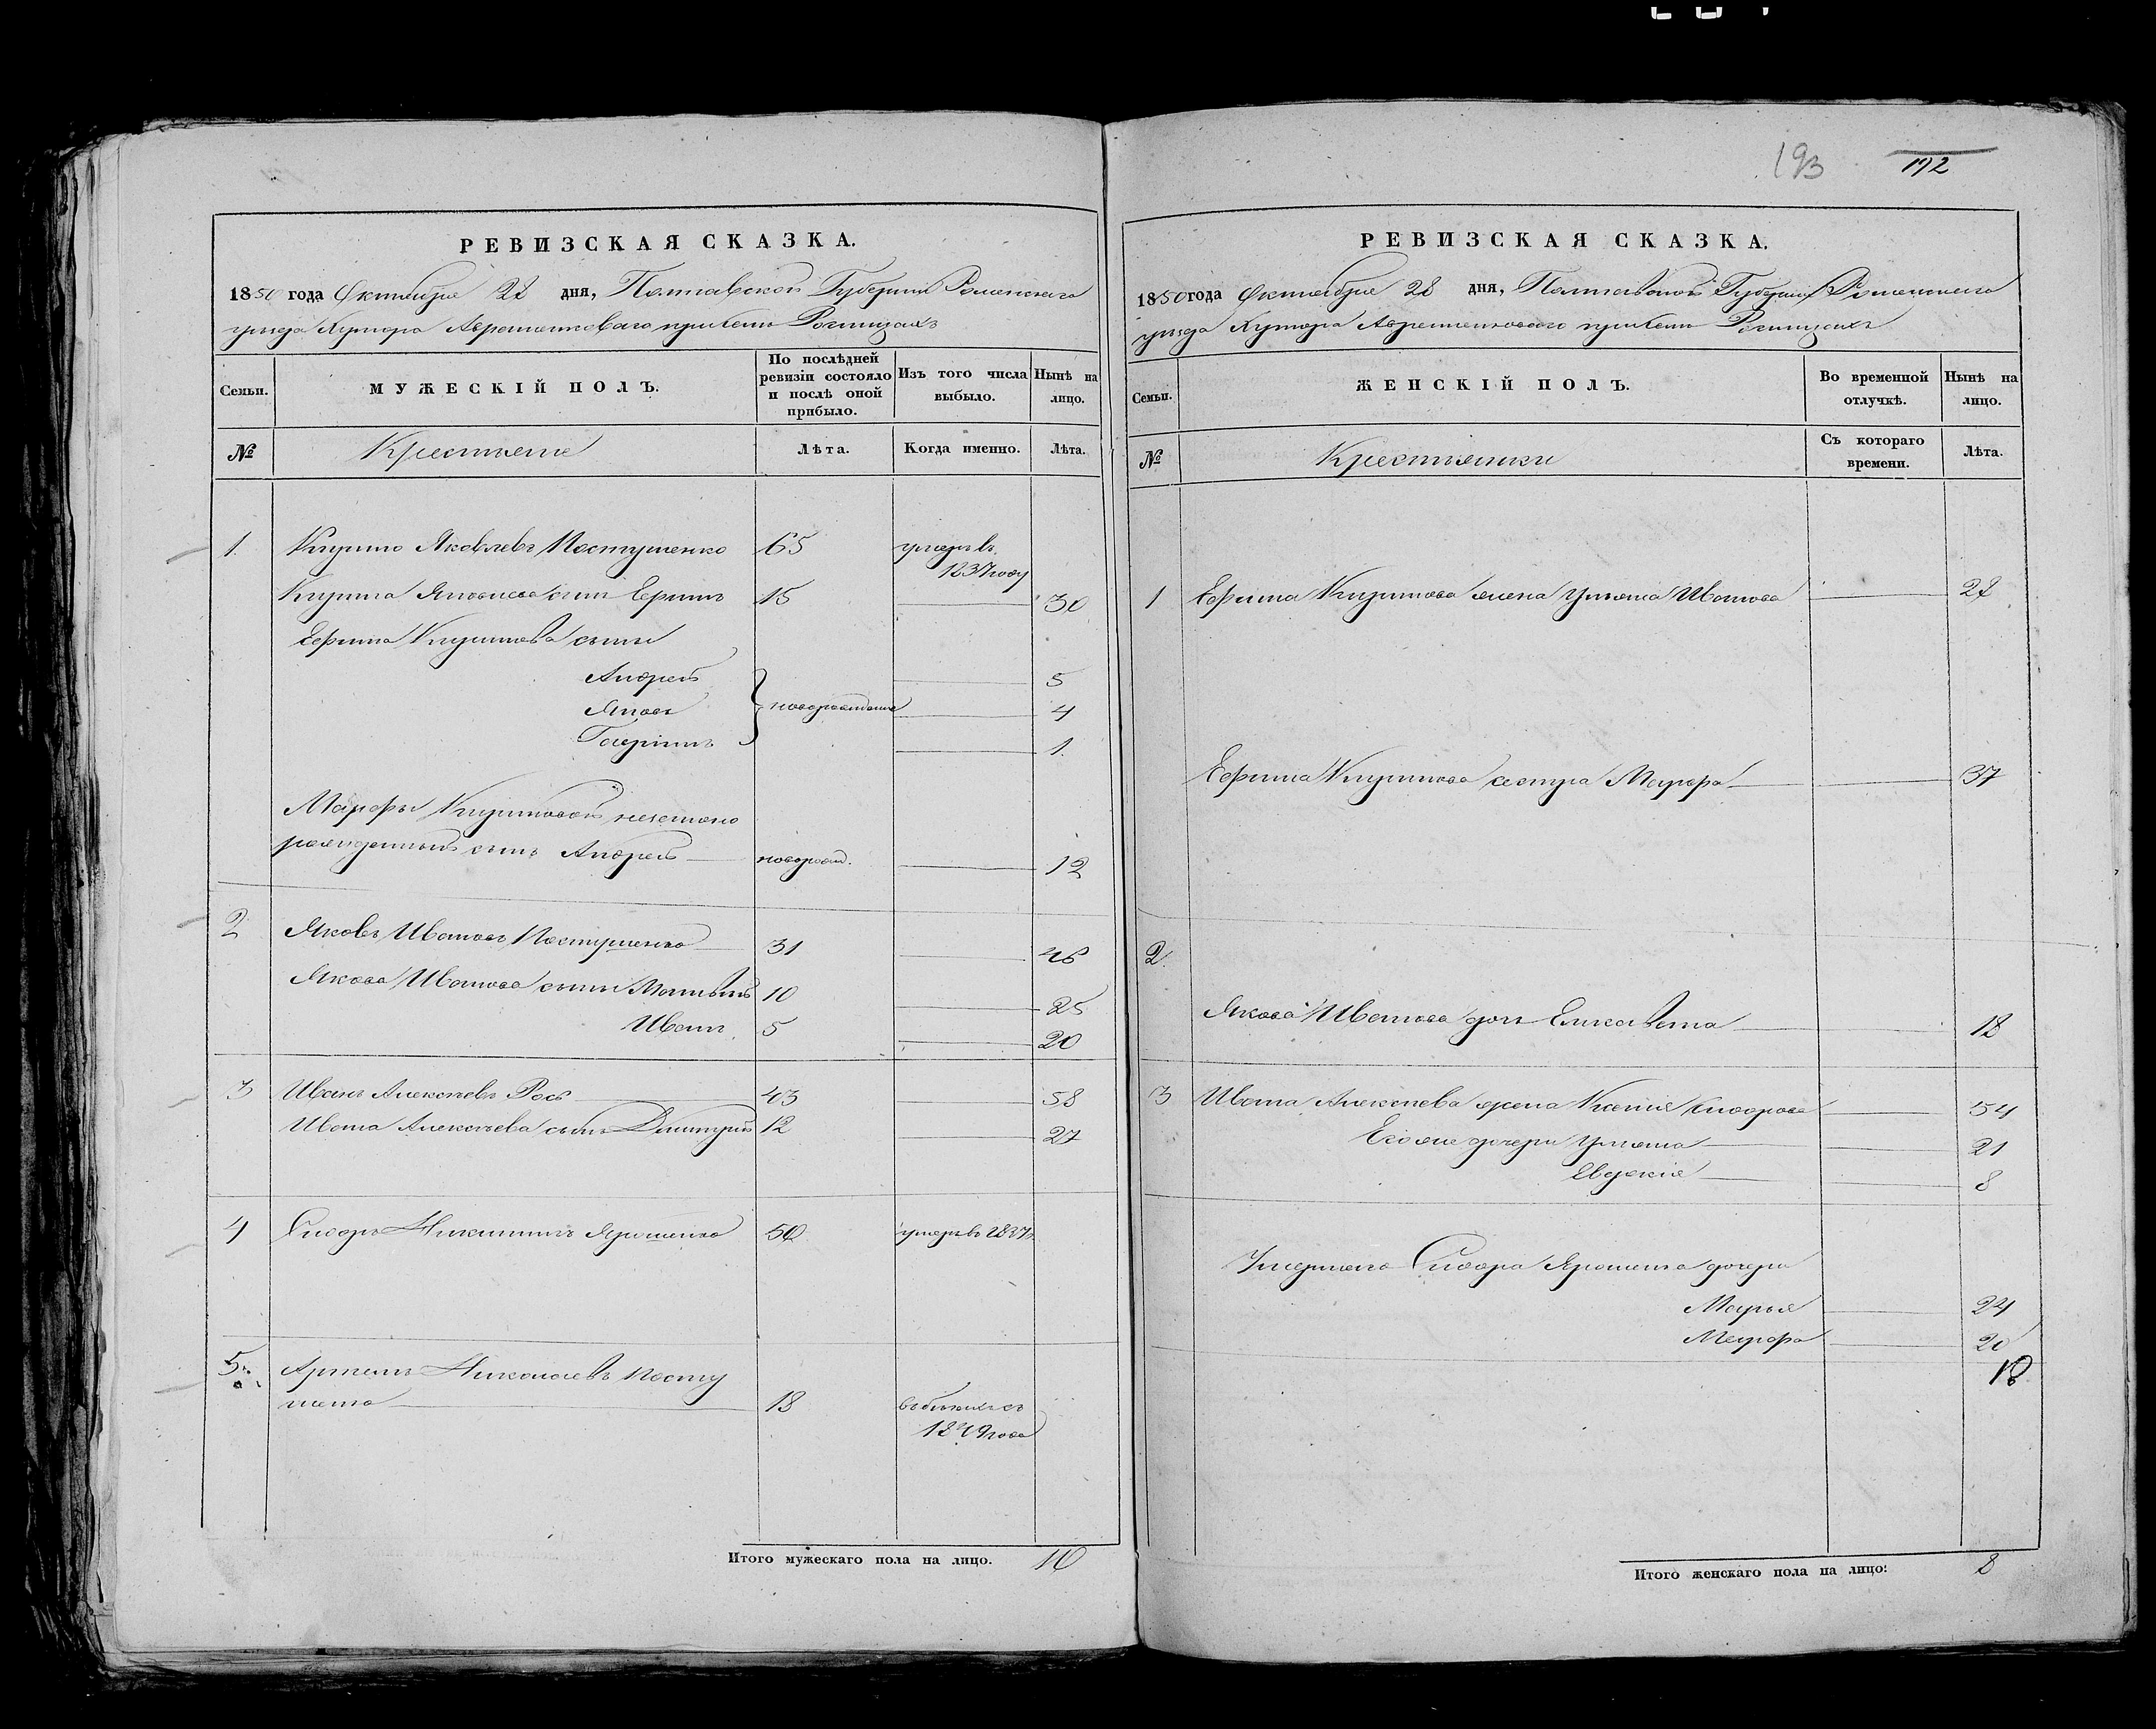 193 192
РЕВИЗСКАЯ СКАЗКА.
1850 года Октября 28 дня, Полтавской Губернии Роменскаго
уезда Хутора Авраменковаго при
МУЖЕСКІЙ ПОЛЪ.
Семьи.
По послѣдней ревизіи состояло и послѣ оной прибыло.
Изъ того числа выбыло.
Нынѣ на лицо.
№ Крестьяне Лѣта. Когда именно. Лѣта.
1. Яковлевъ Пастушенко 65 умеръ въ 1837 году
Яковлева сынъ Ефимъ 15 30
Ефима сыны
Андрей 5
Яковъ новорожденные 4
1.
Мавры незаконно
рожденный сынъ Андрей новорожд. 12
2 Яковъ Ивановъ Пастушенко 31 46
Якова Иванова сыны 10 25
Иванъ 5 20
3 Иванъ Алексѣевъ 43 58
Ивана Алексѣева сынъ Дмитрій 12 27
4 Сидоръ Никитинъ Ярошенко 50 умеръ въ 1837г.
5. Артемъ Николаевъ Пасту
шенко 18 въ бѣгахъ съ
1849 года
Итого мужескаго пола на лицо. 10
РЕВИЗСКАЯ СКАЗКА.
1850 года Октября 28 дня, Полтавской Губерніи Роменскаго
уезда Хутора Авраменковаго при
Семьи.
ЖЕНСКІЙ ПОЛЪ.
Во временной отлучкѣ.
Нынѣ на лицо.
№ Крестьянки Съ котораго времени. Лѣта.
1 Ефима жена Ульяна Иванова 28
Ефима сестра Мавра 37
2.
Якова Иванова дочь Елисавета 18
3 Ивана Алексѣева жена Ксенія Сидорова 54
Его же дочери Ульяна 21
Евдокія 8
Умершаго Сидора Ярошенка дочери
Марья 24
20
Итого женскаго пола на лицо: 8